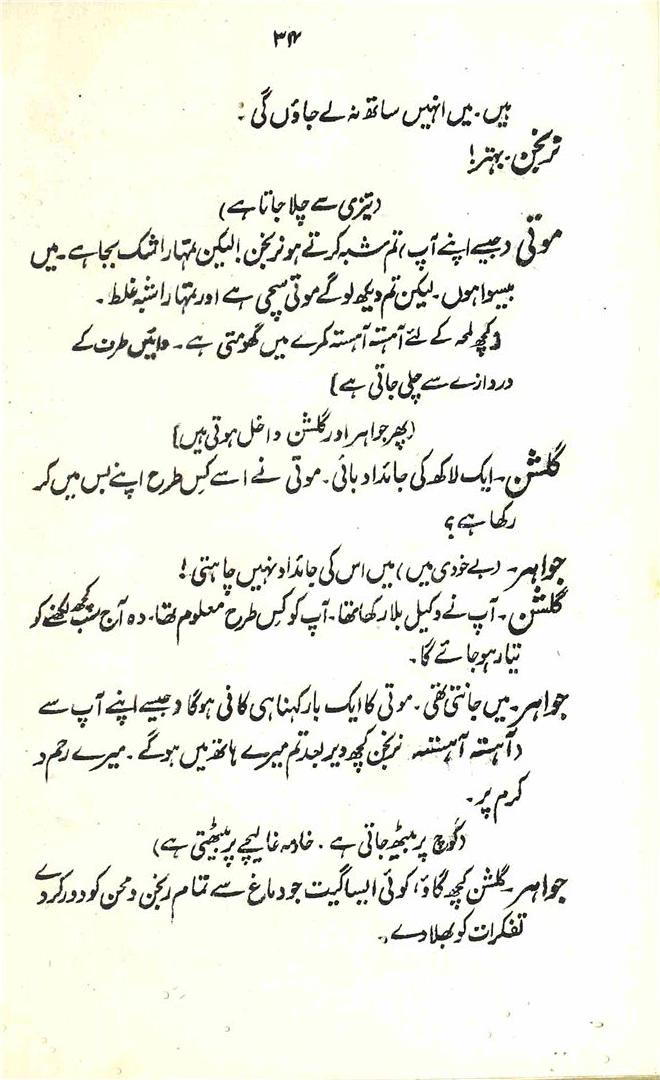 ۳۴
ہیں۔ میں انہیں ساتھ نہ لے جاؤں گی۔
نرنجن۔ بہتر!
(تیزی سے چلا جاتا ہے)
موتی (جیسے اپنے آپ) تم شبہ کرتے ہو نرنجن! لیکن تمہارا شک بجا ہے۔ میں
بیسوا ہوں۔ لیکن تم دیکھ لو گے موتی سچی ہے اور تمہارا شبہ غلط۔
(کچھ لمحہ کے لئے آہستہ آہستہ کمرے میں گھومتی ہے۔ دائیں طرف کے
دروازے سے چلی جاتی ہے)
(پھر جواہر اور گلشن داخل ہوتی ہیں)
گلشن۔ ایک لاکھ کی جائداد بائی۔ موتی نے اسے کس طرح اپنے بس میں کر
رکھا ہے؟
جواہر۔ (بے خودی میں) میں اس کی جائداد نہیں چاہتی!
گلشن۔ آپ نے وکیل بلا رکھا تھا۔ آپ کو کس طرح معلوم تھا۔ وہ آج سب کچھ لکھنے کو
تیار ہو جائے گا۔
جواہر۔ میں جانتی تھی۔ موتی کا ایک بار کہنا ہی کافی ہوگا (جیسے اپنے آپ سے
(آہستہ آہستہ نرنجن کچھ دیر بعد تم میرے ہاتھ میں ہوگے۔ میرے رحم و
کرم پر۔
(کوچ پر بیٹھ جاتی ہے۔ خادمہ غالیچے پر بیٹھتی ہے)
جواہر۔ گلشن کچھ گاؤ، کوئی ایسا گیت جو دماغ سے تمام رنجن و محن کو دور کر دے
تفکرات کو بھلا دے۔